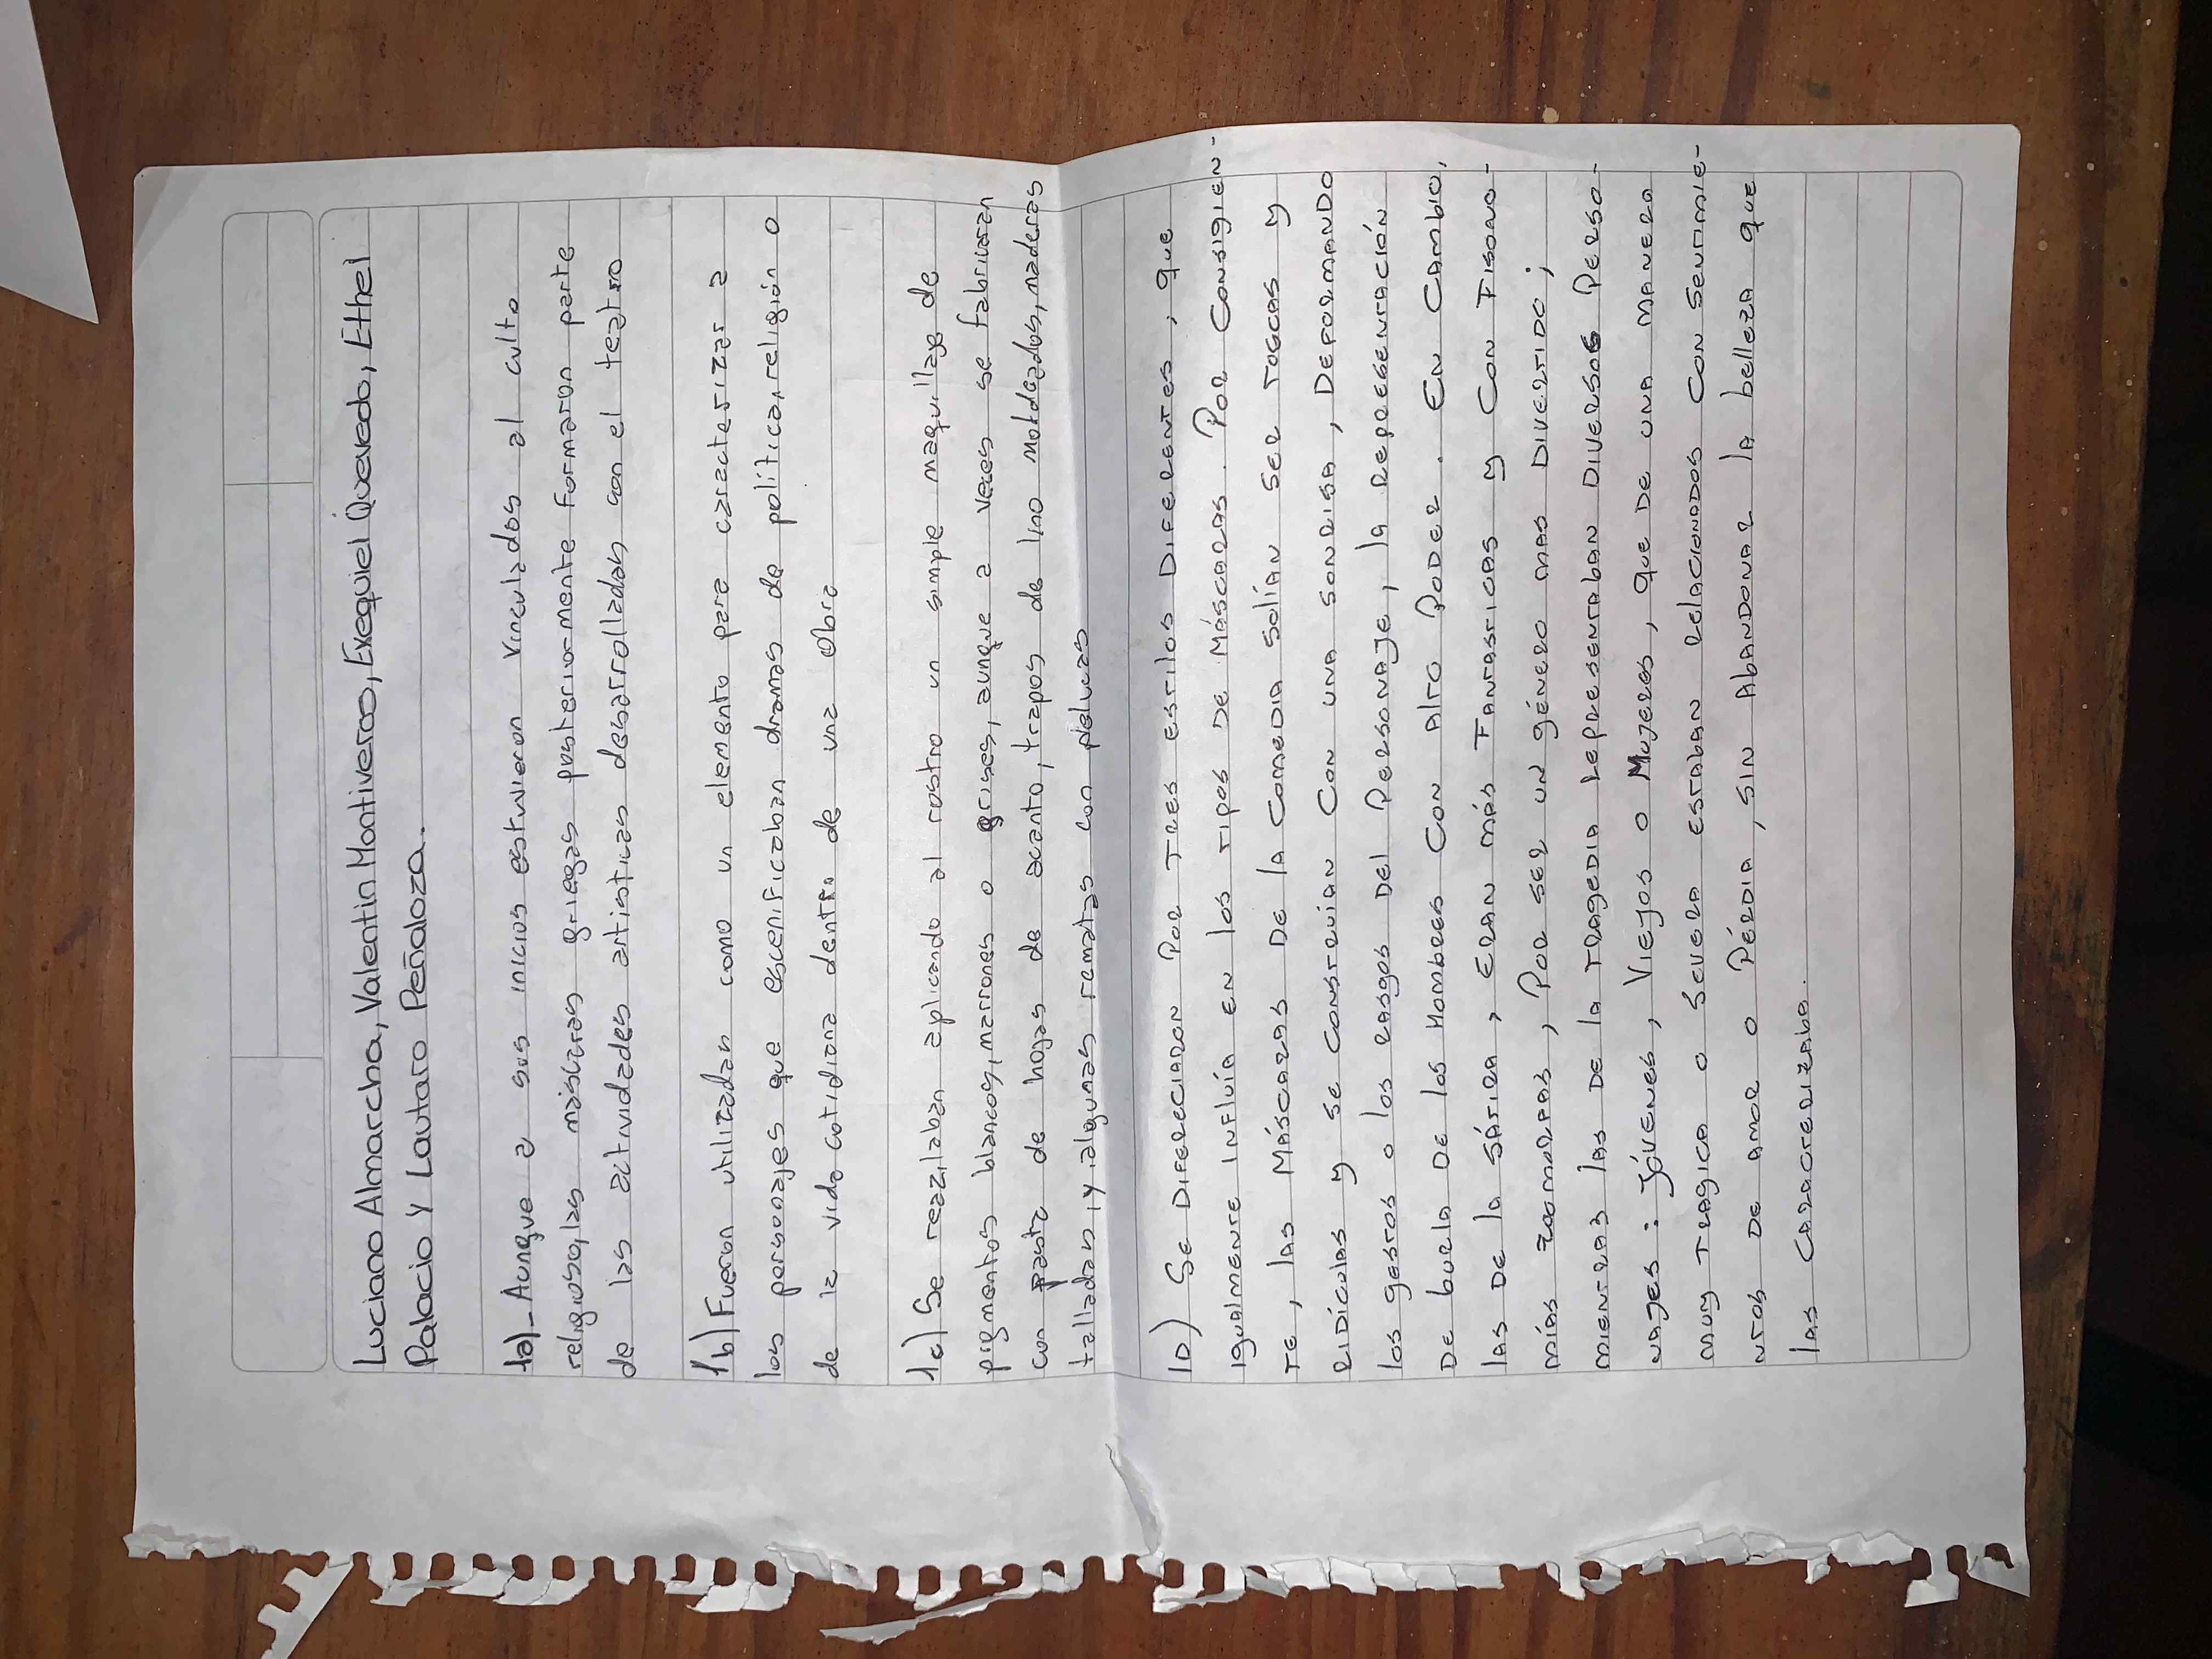 Luciano Almarcha, Valentin Montiveros, Exequiel Quevedo, Ethel
Palacio Y Lautaro Peñaloza.
1a)_Aunque a sus inicios estuvieron vinculados al culto
religioso, las máscaras griegas posteriormente formaron parte
de las actividades artisticas desarrolladas con el teatro
1b) Fueron utilizadas como un elemento para caracterizar a
los personajes que escenificaban dramas de politica, religión o
de la vida cotidiana dentro de una Obra
1c) Se reazilaban aplicando al rostro un simple maquillaje de
pigmentos blancos, marrones o grises, aunque a veces se fabricaran
con pasta de hojas de acanto, trapos de lino moldeados, maderas
talladas, y algunas rematas con pelucas
1D) Se Difereciaron Por tres estilos Diferentes, que
igualmente influía en los tipos de Máscaras. Por consiguien-
te, las Máscaras de la comedia solían ser toscas y
ridículas y se construían con una sonrisa, deformando
los gestos o los rasgos del Personaje, la representación
de burla de los hombres con alto Poder. En cambio,
las de la sátira, eran más Fantasticas y con Fisono-
mías zoomorfas, Por ser un género mas divertido;
mientras las de la tragedia representaban diversos Perso-
najes: jóvenes, Viejos o Mujeres, que de una manera
muy tragica o severa estaban relacionados con sentimie-
ntos de amor o Pérdia, sin abandonar la belleza que
las caracterizaba.